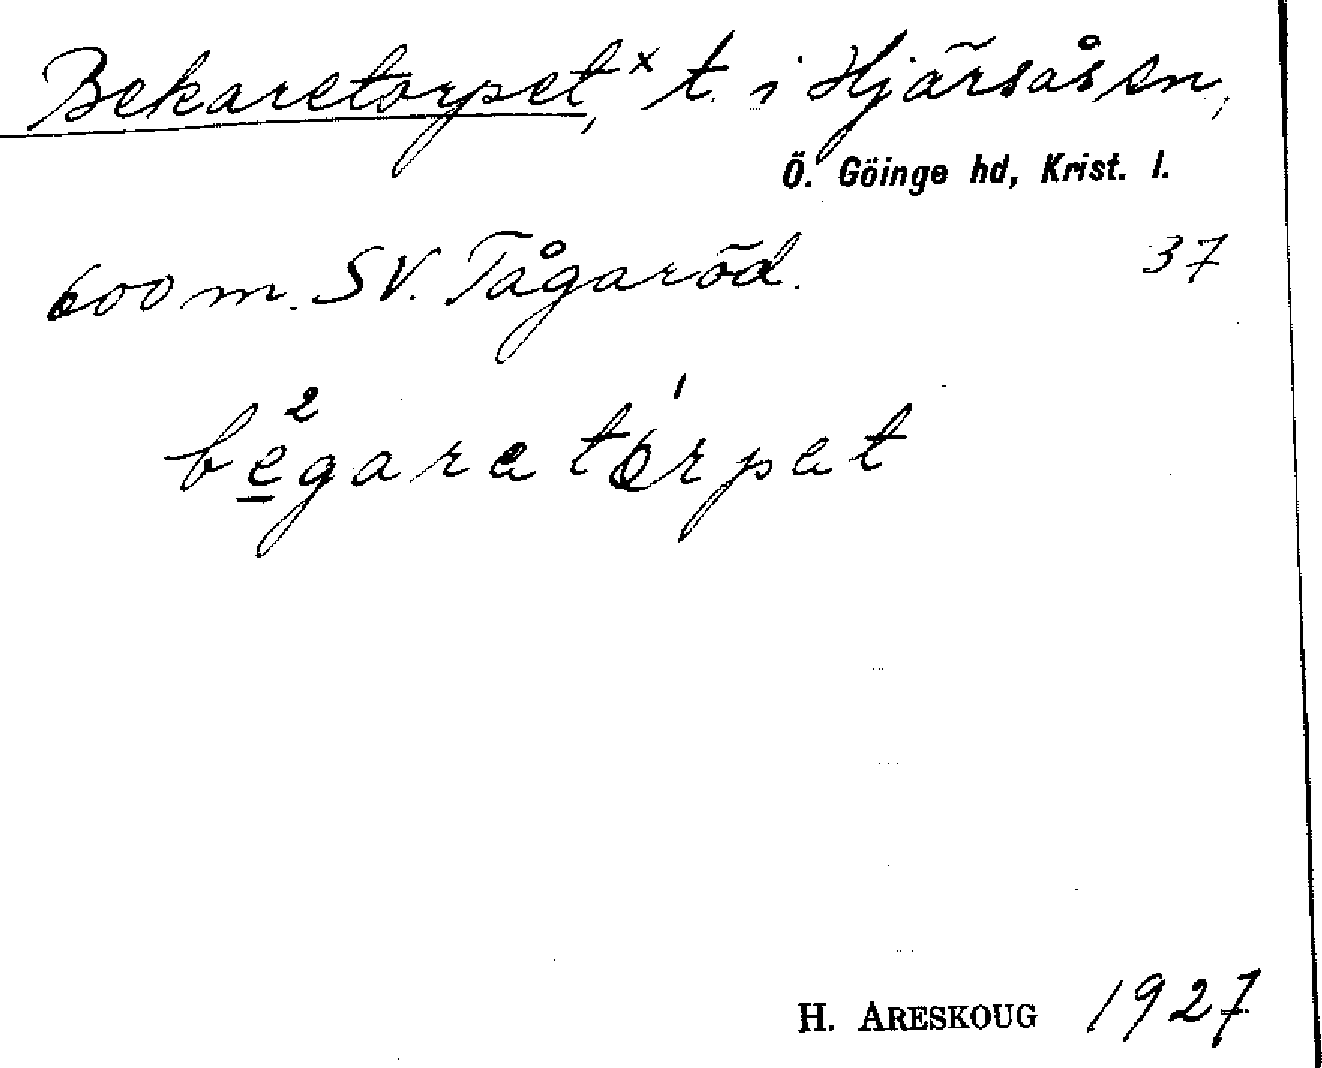 Bekaretorpet,ˣ t. i Hjärsåsen,
Ö. Göinge hd, Krist. l.
600 m. SV. Tågaröd. 37
be̲²gara tórpet
H. ARESKOUG 1927